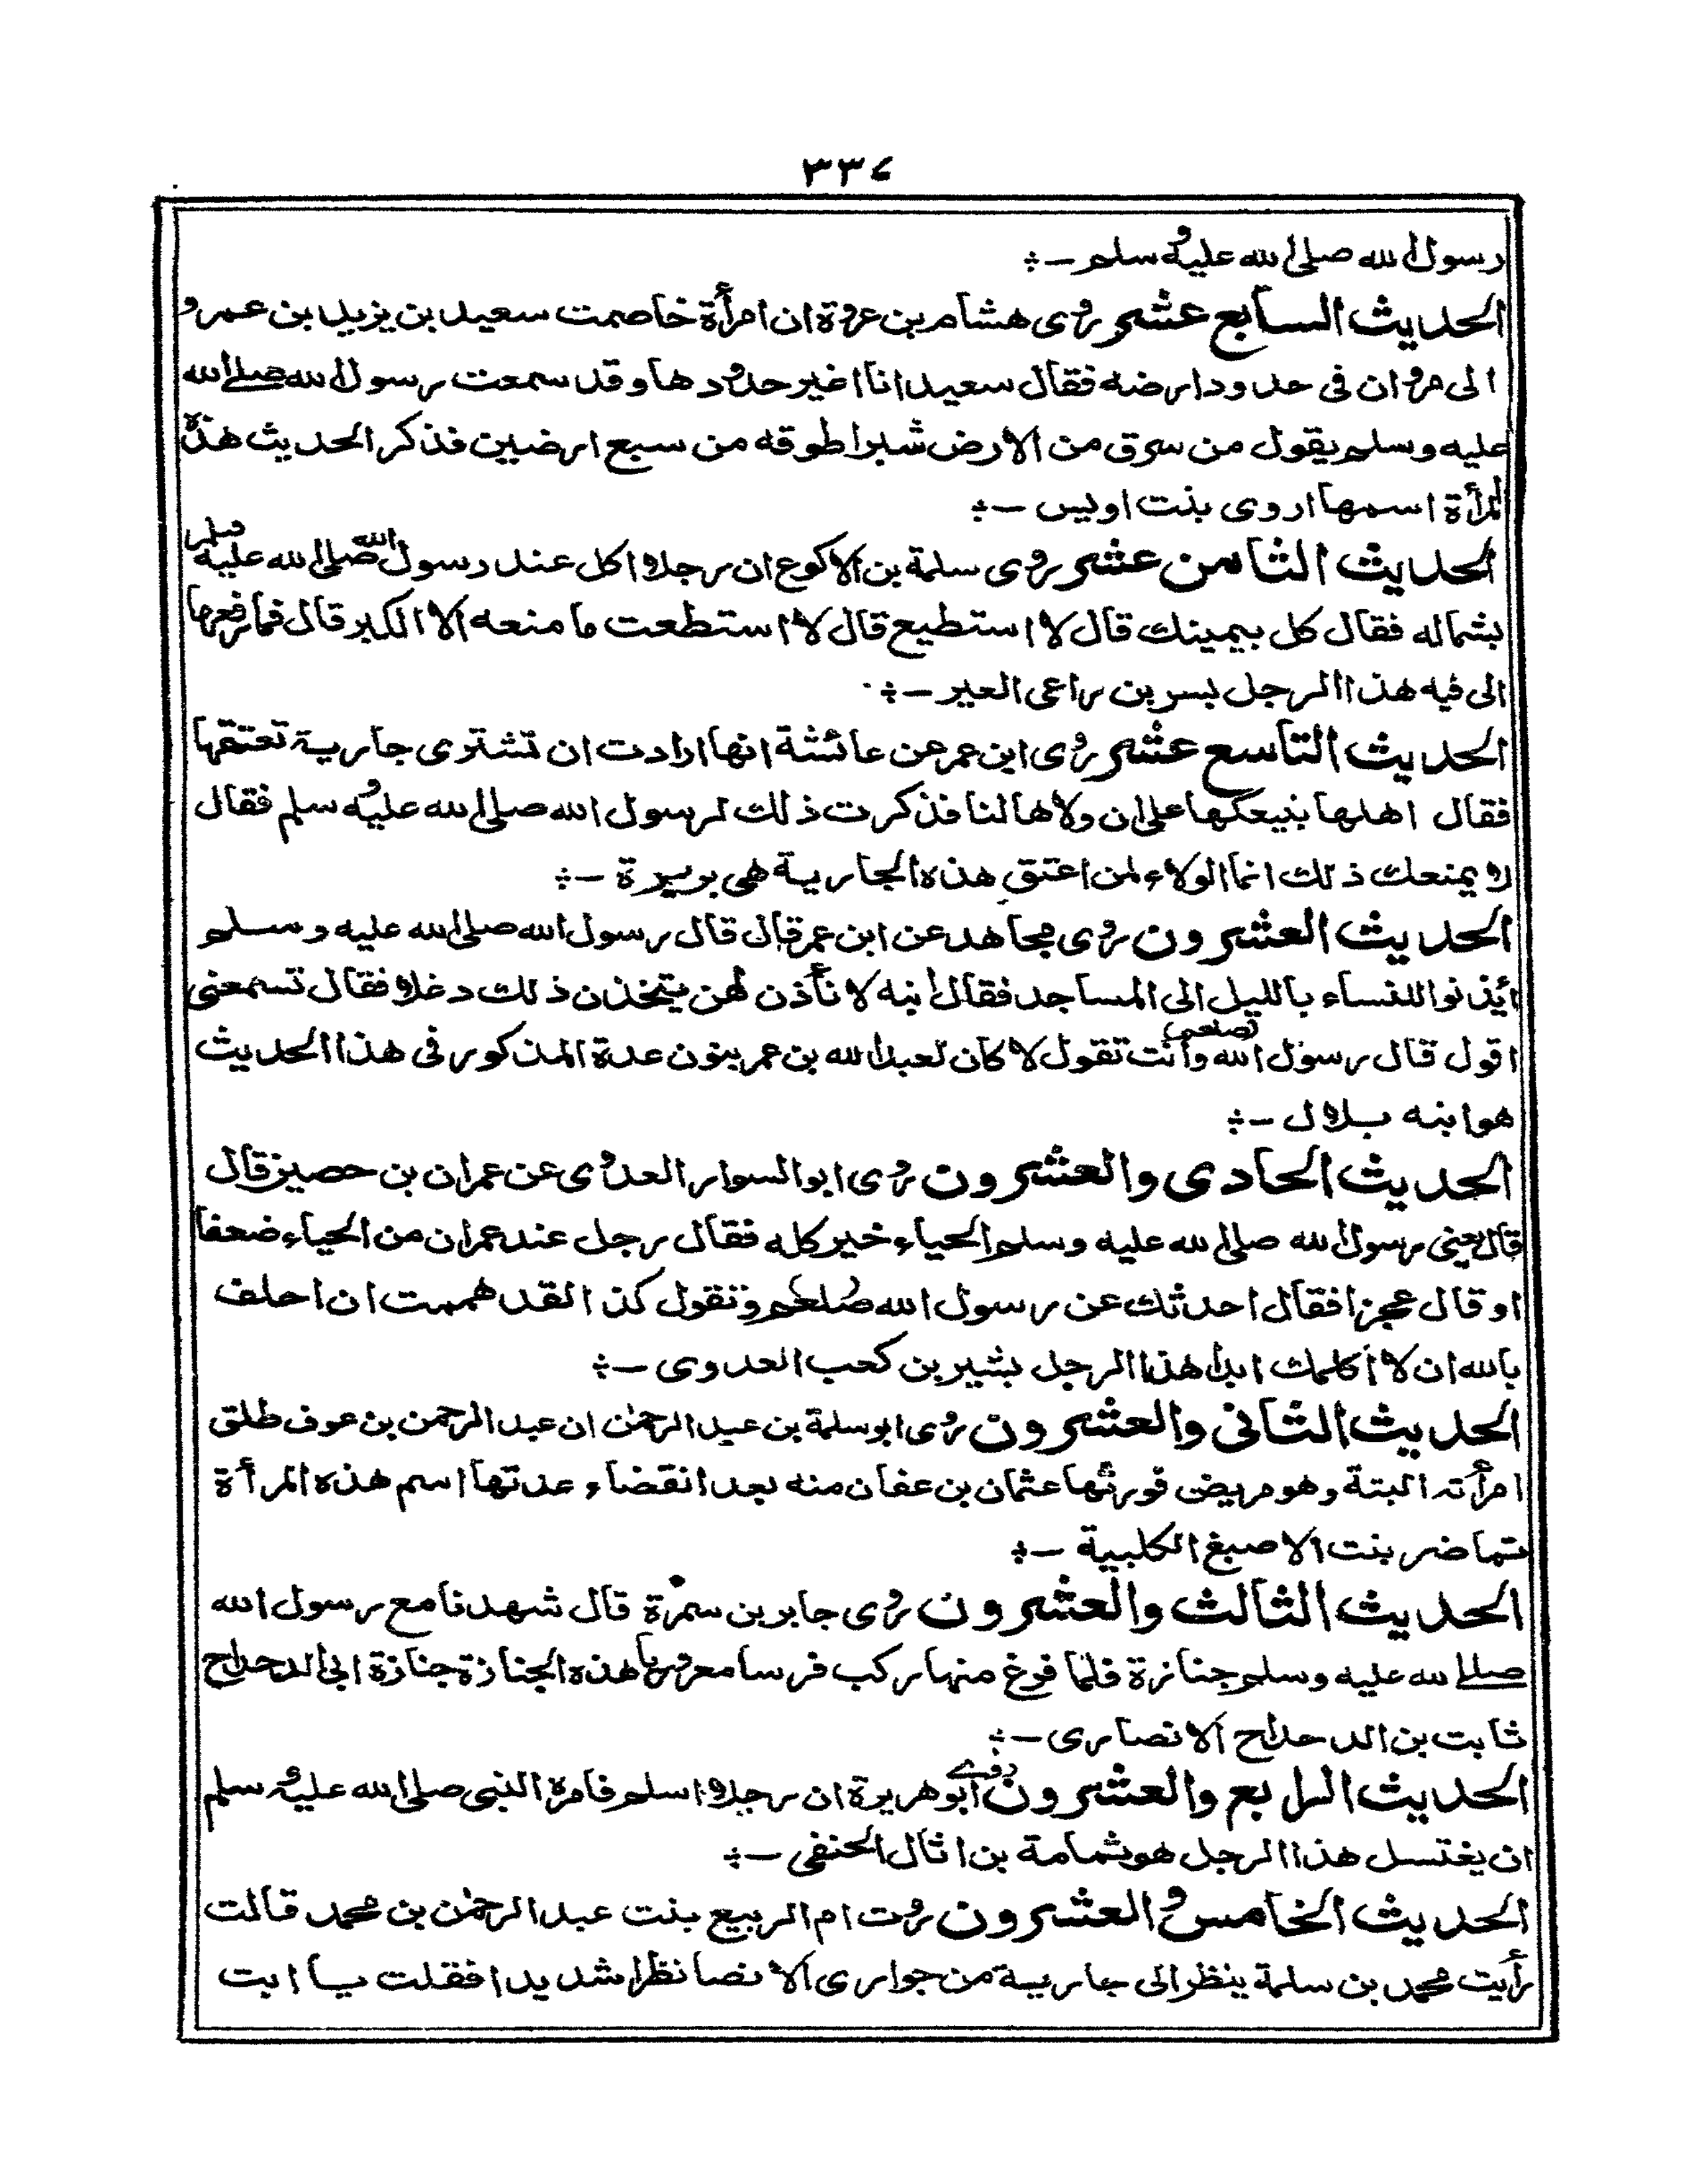 ٣٣٤
رسول الله صلى الله عليه وسلم -؞
الحديث السابع عشر روى هشام بن عروة ان امرأة خاصمت سعيد بن يزيد بن عمرو
الى مروان فى حدود ارضه فقال سعيد انا اغير حدودها وقد سمعت رسول الله صلى الله
عليه وسلم يقول من سرق من الارض شبرا طوقه من سبع ارضين فذكر الحديث هذه
المرأة اسمها اروى بنت اويس -؞
الحديث الثامن عشر روى سلمة بن الاكوع ان رجلا اكل عند رسول الله صلى الله عليه وسلم
بشماله فقال كل بيمينك قال لا استطيع قال لا استطعت ما منعه الا الكبر قال فما رفعها
الى فيه هذا الرجل بسر بن راعى العير -؞
الحديث التاسع عشر روى ابن عمر عن عائشة انها ارادت ان تشترى جارية تعتقها
فقال اهلها بنيعكها على ان ولاها لنا فذكرت ذلك لرسول الله صلى الله عليه وسلم فقال
لا يمنعك ذلك انما الولاء لمن اعتق هذه الجارية هى بريرة -؞
الحديث العشرون روى مجاهد عن ابن عمر قال قال رسول الله صلى الله عليه وسلم
ائذنوا للنساء بالليل الى المساجد فقال ابنه لا نأذن لهن يتخذن ذلك دغلا فقال تسمعنى
اقول قال رسول الله صلعم وأنت تقول لا كان لعبد الله بن عمر بنون عدة المذكور فى هذا الحديث
هو ابنه بلال -؞
الحديث الحادى والعشرون روى ابو السوار العدوى عن عمران بن حصين قال
قال يعنى رسول الله صلى الله عليه وسلم الحياء خير كله فقال رجل عند عمران من الحياء ضعفا
او قال عجزا فقال احدثك عن رسول الله صلعم وتقول كذا لقد هممت ان احلف
بالله ان لا أكلمك ابدا هذا الرجل بشير بن كعب العدوى -؞
الحديث الثانى والعشرون روى ابو سلمة بن عبد الرحمن ان عبد الرحمن بن عوف طلق
امرأته البتة وهو مريض فورثها عثمان بن عفان منه بعد انقضاء عدتها اسم هذه المرأة
تماضر بنت الاصبغ الكلبية -؞
الحديث الثالث والعشرون روى جابر بن سمرة قال شهدنا مع رسول الله
صلى الله عليه وسلم جنازة فلما فرغ منها ركب فرسا معروريا هذه الجنازة جنازة ابى الدحداح
ثابت بن الدحداح الانصارى -؞
الحديث الرابع والعشرون روى أبو هريرة ان رجلا اسلم فامره النبى صلى الله عليه وسلم
ان يغتسل هذا الرجل هو ثمامة بن اثال الحنفى -؞
الحديث الخامس والعشرون روت ام الربيع بنت عبد الرحمن بن محمد قالت
رأيت محمد بن سلمة ينظر الى جارية من جوارى الانصا نظرا شديدا فقلت يا ابت